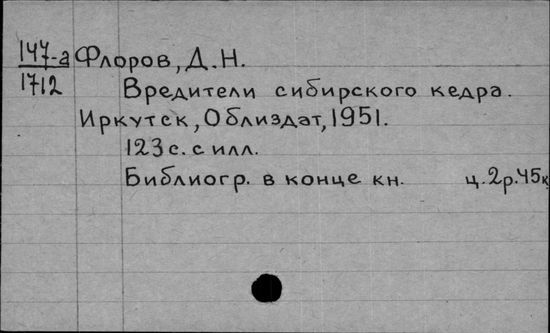 147-а Флоров, Д.Н.
1712
Вредители сибирского кедра.
Иркутск, Облиздат, 1951.
123 с. с илл.
Библиогр. в конце кн. ц. 2р.45к